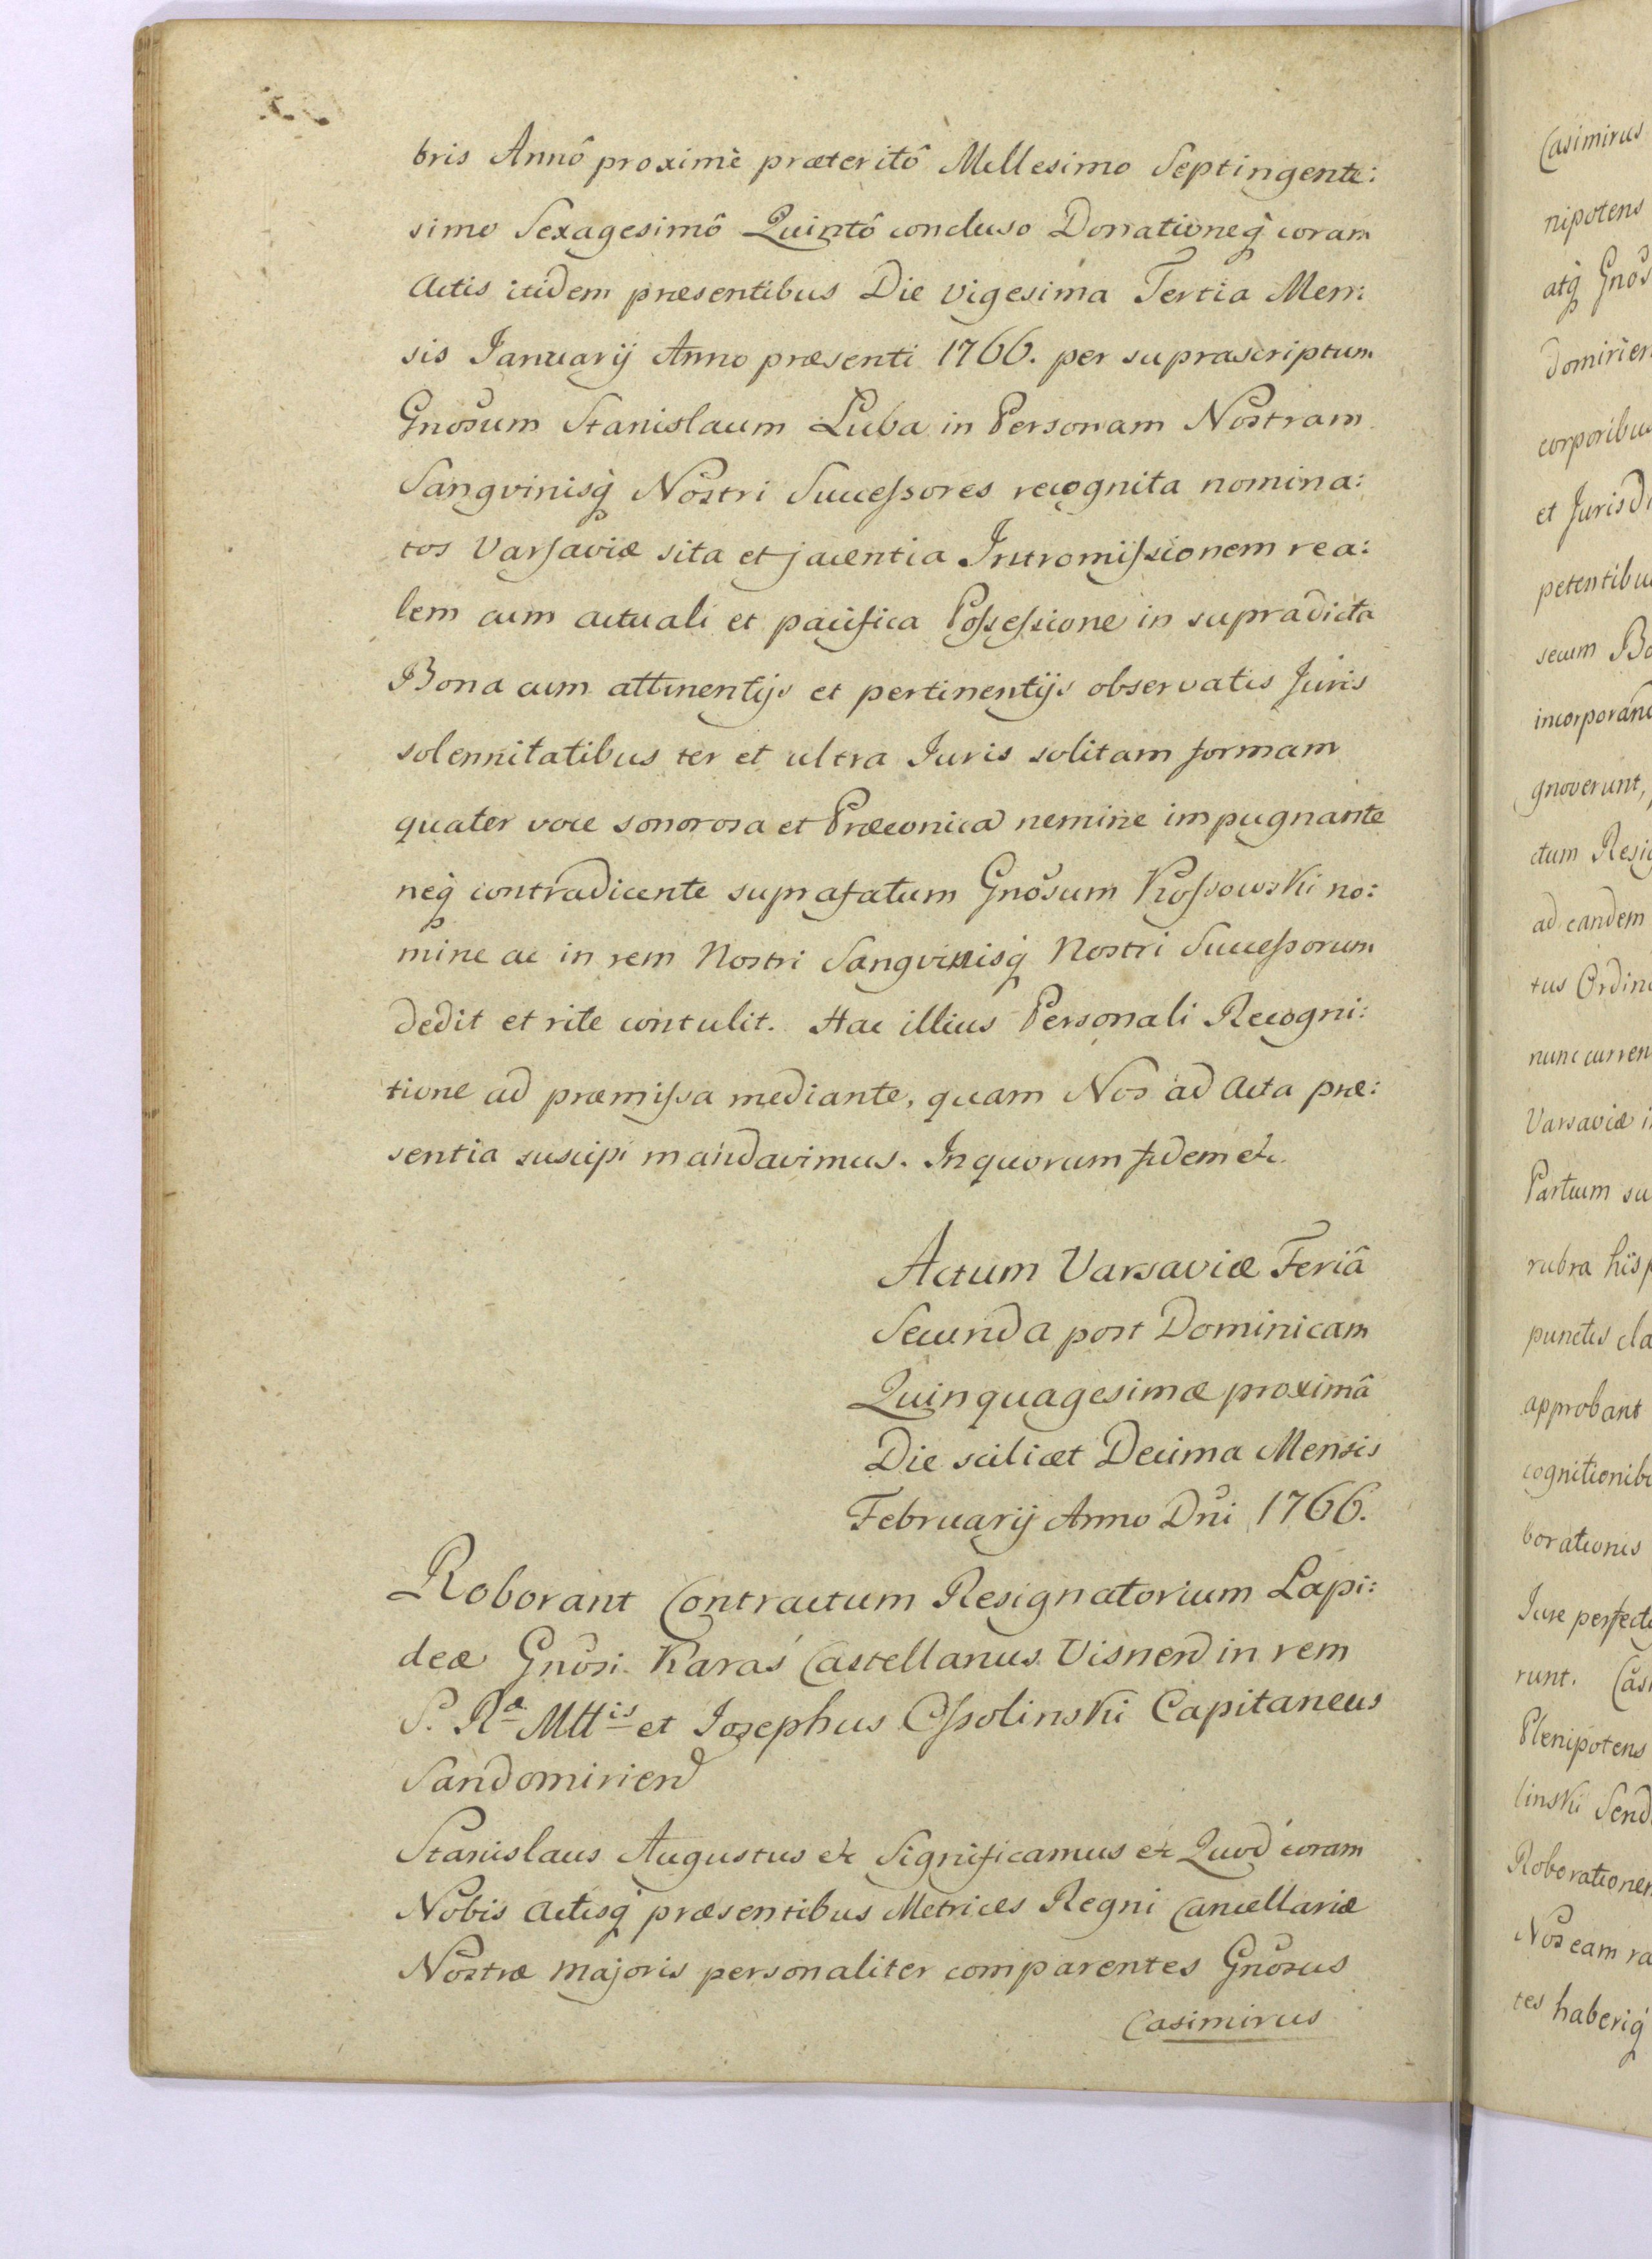 bris Annô proximè præteritô Millesimo Septingente:
simo Sexagesimô Quintô concluso Donationeq́ coram
Actis itidem præsentibus Die vigesima Tertia Men:
sis Januarij Anno præsenti 1766. per suprascriptum
Gnosum Stanislaum Luba in Personam Nostram
Sangvinisq́ Nostri Successores recognita nomina:
tos Varsaviæ sita et jacentia Intromissionem rea:
lem cum actuali et pacifica Possessione in supradicta
Bona cum attinentijs et pertinentijs observatis Juris
solennitatibus ter et ultra Juris solitam formam
quater voce sonorosa et Præconica nemine impugnante
neq́ contradicente suprafatum Gnosum Kossowski no:
mine ac in rem Nostri Sangvinisq́ Nostri Successorum
dedit et rite contulit. Hac illius Personali Recogni:
tione ad præmissa mediante, quam Nos ad Acta præ:
sentia suscipi mandavimus. In quorum fidem etc.
Actum Varsaviæ Feriâ
Secunda post Dominicam
Quinquagesimæ proximâ
Die scilicet Decima Mensis
Februarij Anno Dni 1766.
Roborant Contractum Resignatorium Lapi:
deæ Gnosi Karaś Castellanus Visnen in rem
S. Ræ Mttis et Josephus Ossolinski Capitaneus
Sandomirien
Stanislaus Augustus etc Significamus etc Quod coram
Nobis Actisq́ præsentibus Metrices Regni Cancellariæ
Nostræ Majoris personaliter comparentes Gnosus
Casimirus
Casimirus
nipotens
atq́ Gnos
domirien
corporibus
et Jurisdi
petentibu
secum Bo
incorporand
gnoverunt,
ctum Resig
ad eandem
tus Ordin
nunc curren
Varsaviæ i
Partium su
rubra hisp
punctis cla
approbant
cognitionib
borationis
Jure perfect
runt. Cas
Plenipotens
linski Send
Roborationem
Nos eam ra
tes haberiq́